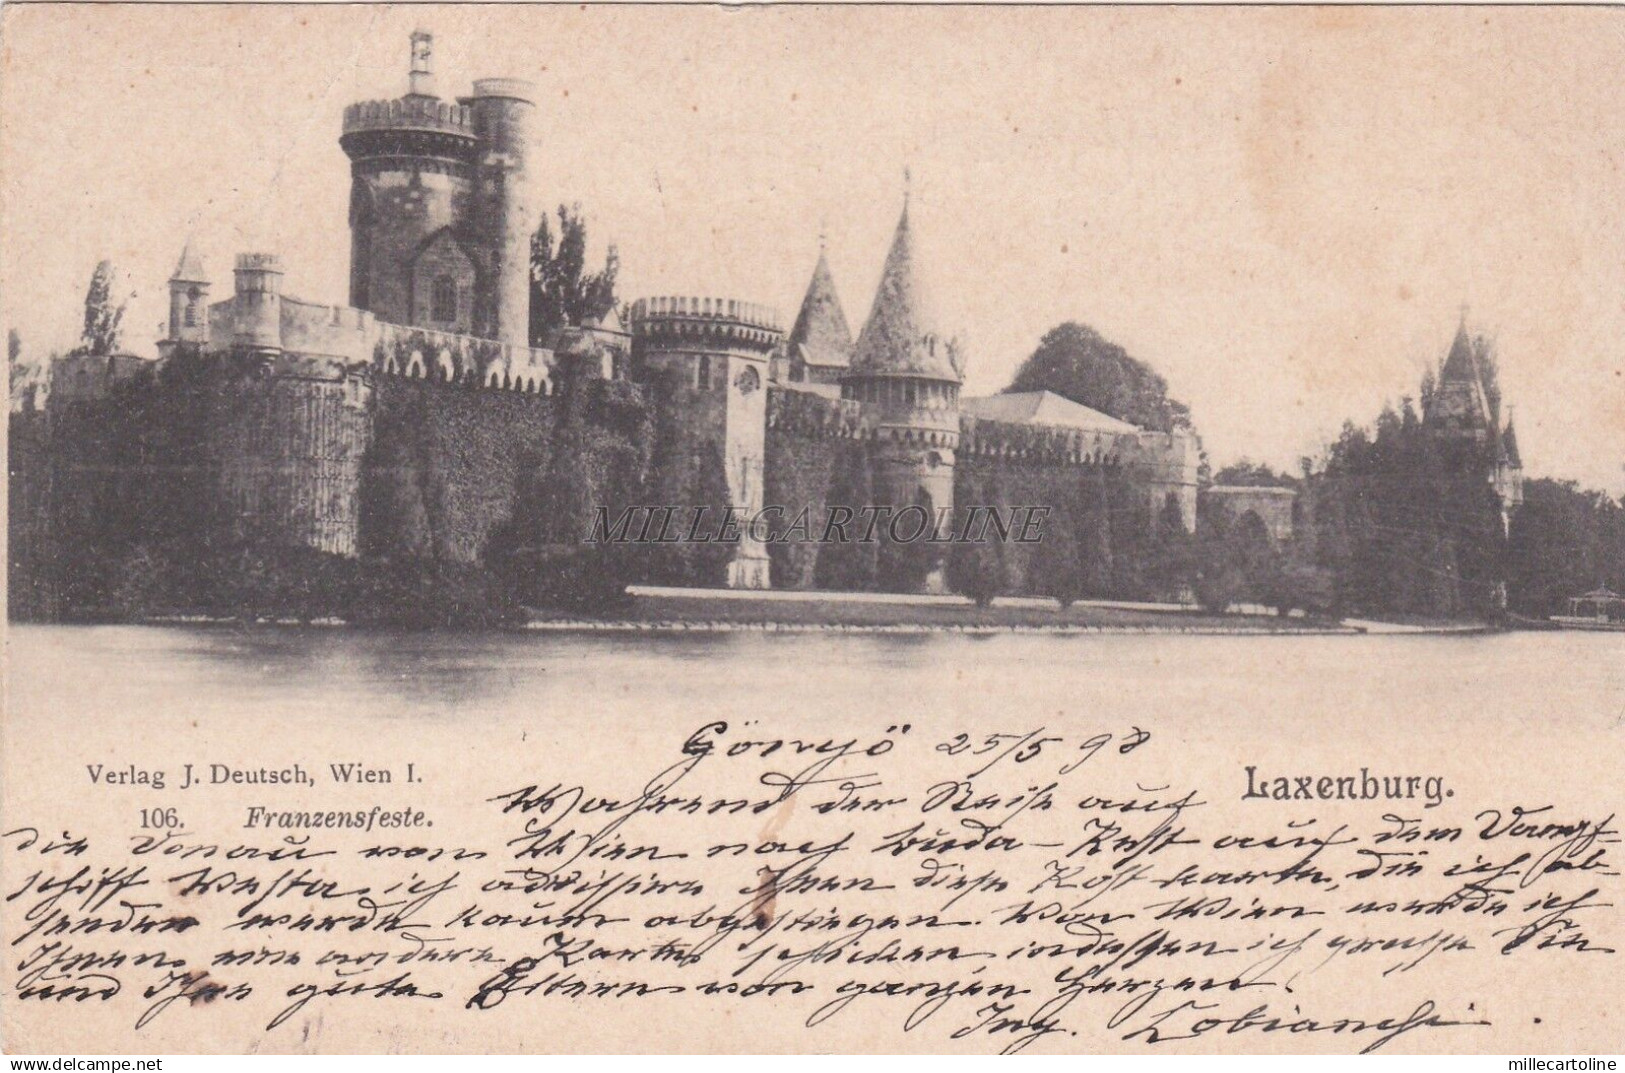 MILLECARTOLINE
Gönyö 25/5 98
Verlag J. Deutsch, Wien I.
Laxenburg.
106. Franzensfeste.
Während der Reise auf
die Donau von Wien nach Buda-Pest auf dem Dampf-
schiff Vesta, ich adressire Ihnen diese Postkarte, die ich ab-
senden werde kaum abgestiegen. Von Wien werde ich
Ihnen eine andere Karte schicken, indessen ich grüsse Sie
und Ihre gute Eltern von ganzen Herzen.
Ing. Lobianchi.
millecartoline
millecartoline